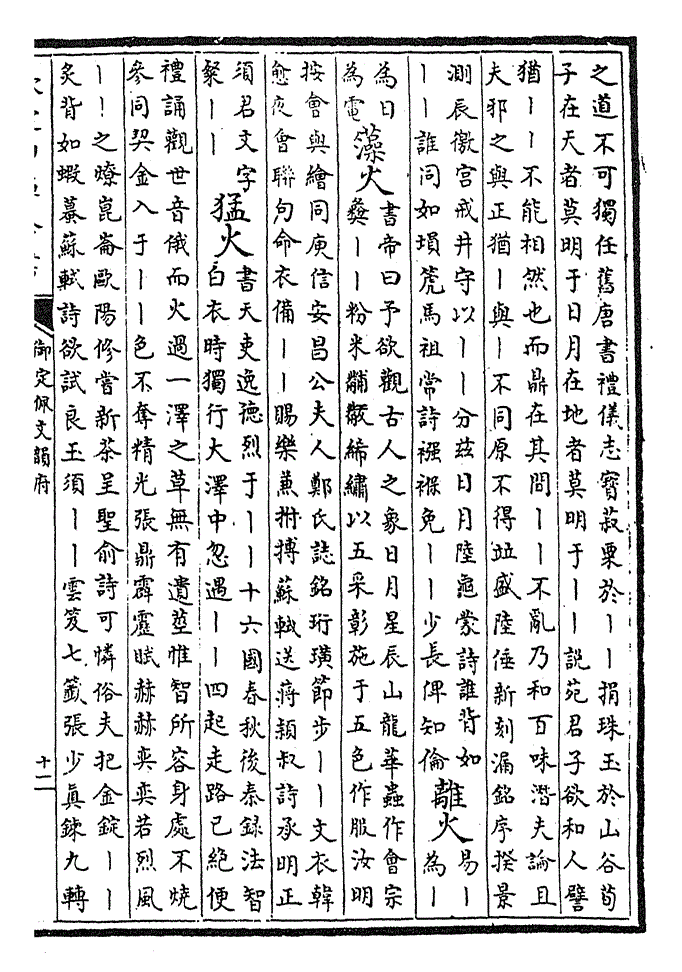 之道不可獨任舊唐書禮儀志寳菽粟於丨丨捐珠玉於山谷荀
子在天者莫明于日月在地者莫明于丨丨說苑君子欲和人譬
猶丨丨不能相然也而鼎在其間丨丨不亂乃和百味潜夫論且
夫邪之與正猶丨與丨不同原不得竝盛陸倕新刻漏銘序揆景
測辰徼宫戒井守以丨丨分兹日月陸龜蒙詩誰背如
丨丨誰同如塤箎馬祖常詩襁褓免丨丨少長俾知倫
離火
易丨
為丨
為日
為電
藻火
書帝曰予欲觀古人之象日月星辰山龍華蟲作會宗
彜丨丨粉米黼黻絺繡以五采彰施于五色作服汝明
按會與繪同庾信安昌公夫人鄭氏誌銘珩璜節步丨丨文衣韓
愈夜會聯句命衣備丨丨賜樂兼拊搏蘇軾送蔣穎叔詩承明正
須君文字
粲丨丨
猛火
書天吏逸德烈于丨丨十六國春秋後秦録法智
白衣時獨行大澤中忽遇丨丨四起走路已絶便
禮誦觀世音俄而火過一澤之草無有遺莖惟智所容身處不燒
參同契金入于丨丨色不奪精光張鼎霹靂賦赫赫奕奕若烈風
丨丨之燎崑崙歐陽修嘗新茶呈聖俞詩可憐俗夫把金錠丨丨
炙背如蝦蟇蘇軾詩欲試良玉須丨丨雲笈七籤張少眞鍊九轉
御定佩文韻府
十二